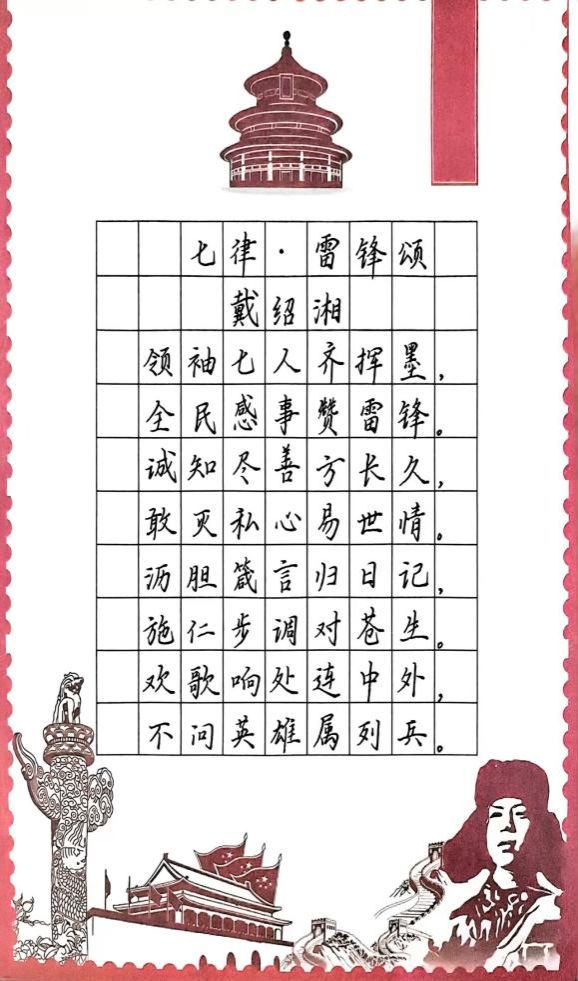 七律·雷锋颂
戴绍湘
领袖七人齐挥墨,
全民感事赞雷锋。
诚知尽善方长久,
敢灭私心易世情。
沥胆箴言归日记,
施仁步调对苍生。
欢歌响处连中外,
不问英雄属列兵。